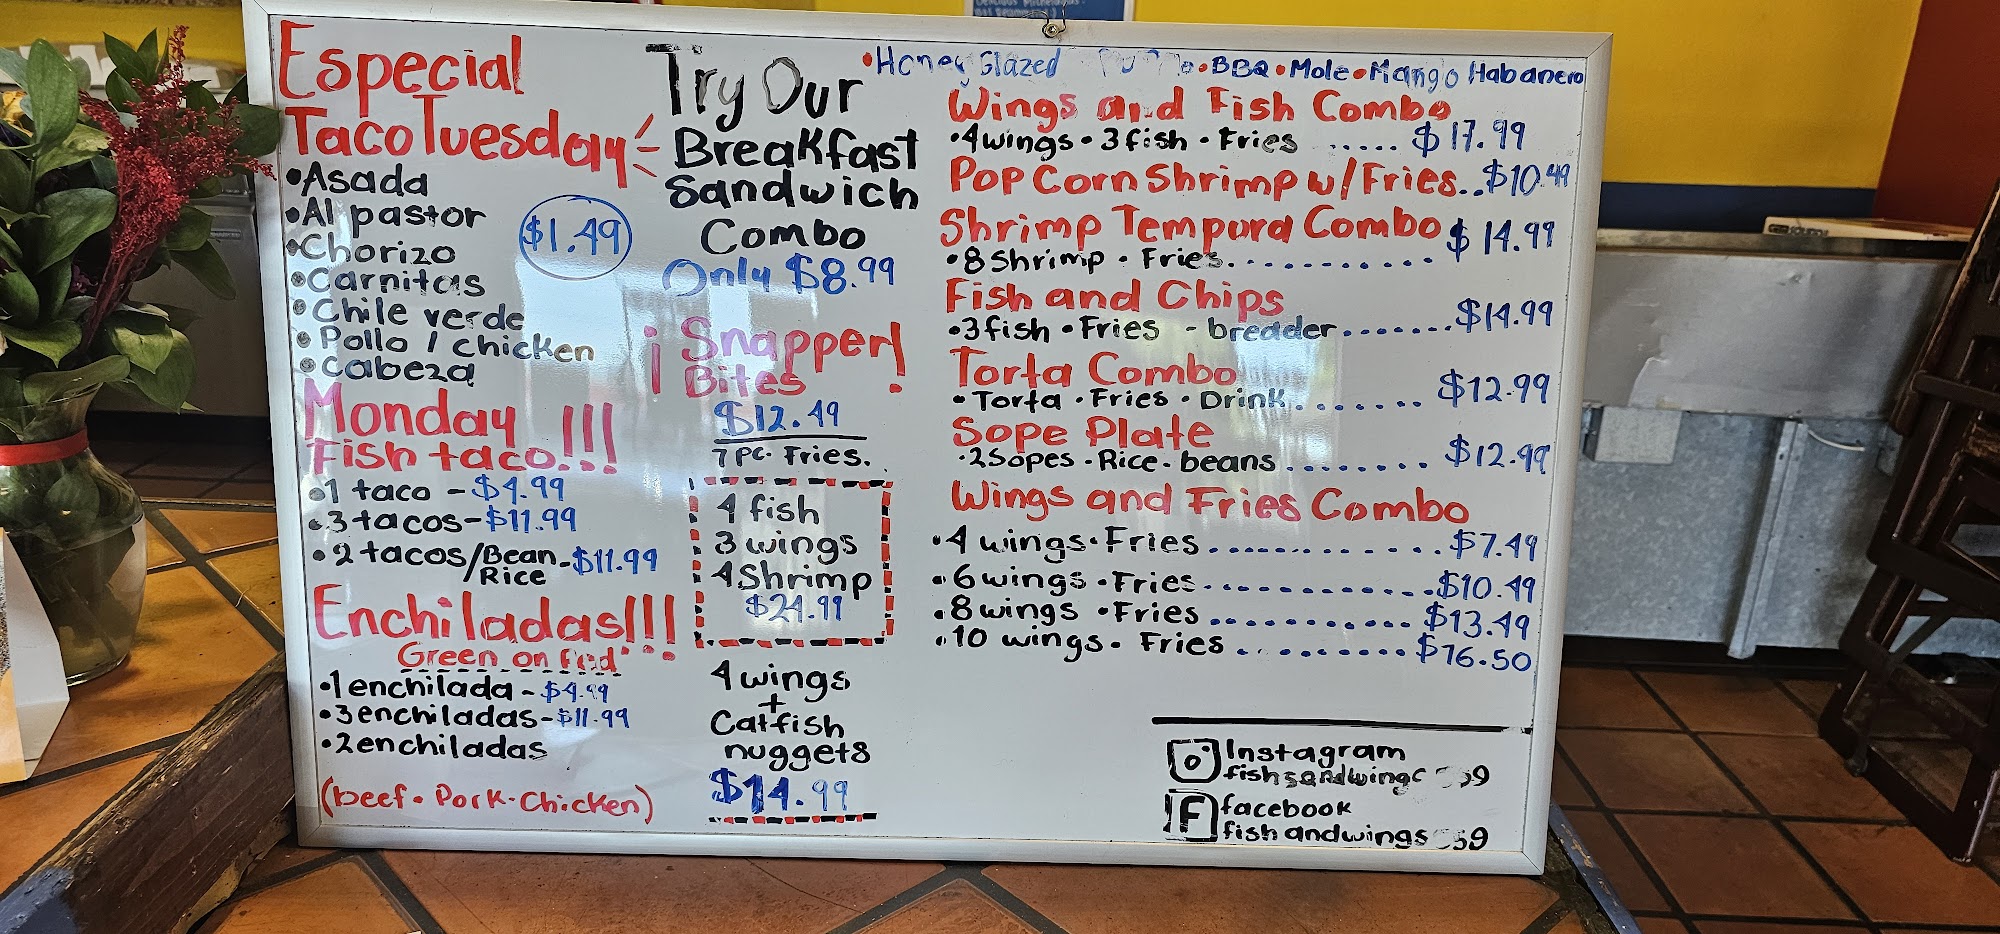 Especial
Taco Tuesday
• Asada
• Al pastor
• Chorizo
• Carnitas
• Chile verde
• Pollo / chicken
• Cabeza
$1.49
Monday
Fish taco!!!
• 1 taco - $4.99
• 3 tacos - $11.99
• 2 tacos/Bean Rice - $11.99
Enchiladas!!!
Green on Red
• 1 enchilada - $4.99
• 3 enchiladas - $11.99
• 2 enchiladas
(beef • Pork • Chicken)
Try Our
Breakfast
Sandwich
Combo
Only $8.99
¡Snapper!
Bites
$12.49
7 PC. Fries.
4 fish
3 wings
4 Shrimp
$24.99
4 wings
+
Catfish
nuggets
$14.99
• Honey Glazed • BBQ • Mole • Mango Habanero
Wings and Fish Combo
• 4 wings • 3 fish • Fries ...... $17.99
Pop Corn Shrimp w/ Fries.. $10.49
Shrimp Tempura Combo $14.99
• 8 Shrimp • Fries............
Fish and Chips
• 3 fish • Fries - breader....... $14.99
Torta Combo
• Torta • Fries • Drink....... $12.99
Sope Plate
• 2 Sopes • Rice • beans........ $12.99
Wings and Fries Combo
• 4 wings • Fries............ $7.49
• 6 wings • Fries............ $10.49
• 8 wings • Fries............ $13.49
• 10 wings • Fries.......... $16.50
Instagram
facebook